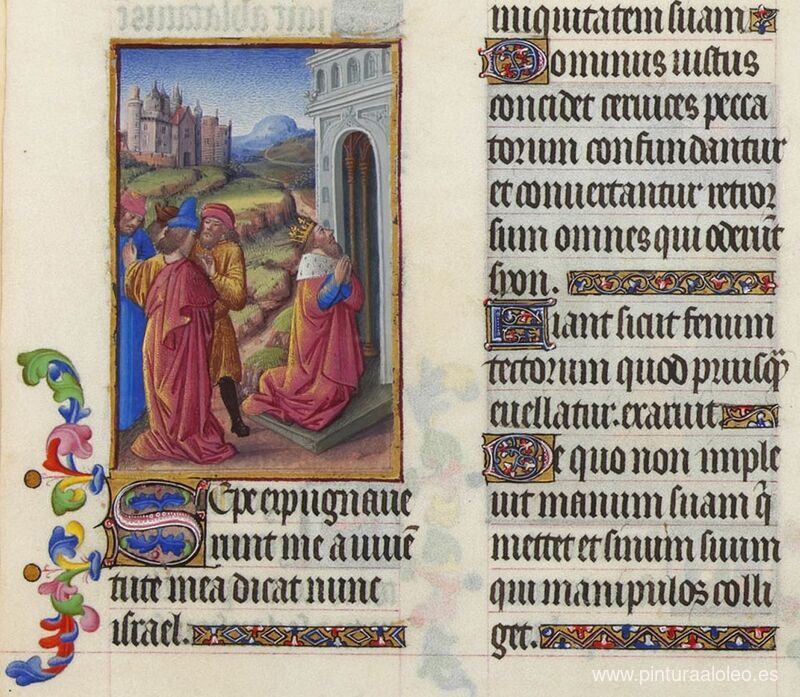 Sepe expugnaue
runt me a iuuē
tute mea dicat nunc
israel.
iniquitatem suam
Dominus iustus
concidet ceruices pecca
torum confundantur
et conuertantur retror
sum omnes qui oderūt
syon.
Fiant sicut fenum
tectorum quod priusq̄
euellatur. exaruit
De quo non imple
uit manum suam q̄
mettet et sinum suum
qui manipulos colli
get.
www.pinturaaloleo.es